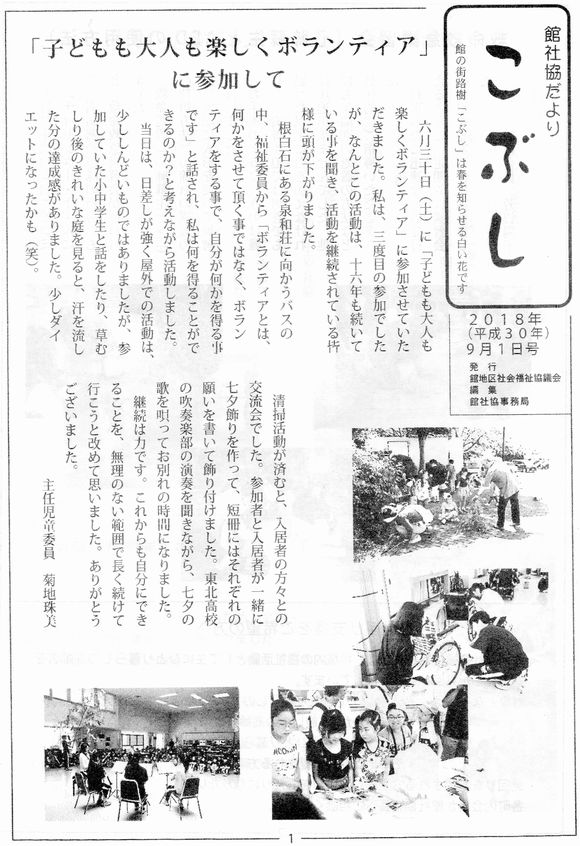 館社協だより
こぶし
館の街路樹「こぶし」は春を知らせる白い花です
2018年
(平成30年)
9月1日号
発 行
館地区社会福祉協議会
編 集
館社協事務局
「子どもも大人も楽しくボランティア」
に参加して
六月三十日（土）に「子どもも大人も
楽しくボランティア」に参加させていた
だきました。私は、三度目の参加でした
が、なんとこの活動は、十六年も続いて
いる事を聞き、活動を継続されている皆
様に頭が下がりました。
根白石にある泉和荘に向かうバスの
中、福祉委員から「ボランティアとは、
何かをさせて頂く事ではなく、ボラン
ティアをする事で、自分が何かを得る事
です」と話され、私は何を得ることがで
きるのか？と考えながら活動しました。
当日は、日差しが強く屋外での活動は、
少ししんどいものではありましたが、参
加していた小中学生と話をしたり、草む
しり後のきれいな庭を見ると、汗を流し
た分の達成感がありました。少しダイ
エットになったかも（笑）。
清掃活動が済むと、入居者の方々との
交流会でした。参加者と入居者が一緒に
七夕飾りを作って、短冊にはそれぞれの
願いを書いて飾り付けました。東北高校
の吹奏楽部の演奏を聞きながら、七夕の
歌を唄ってお別れの時間になりました。
継続は力です。これからも自分にでき
ることを、無理のない範囲で長く続けて
行こうと改めて思いました。ありがとう
ございました。
主任児童委員　菊地珠美
1